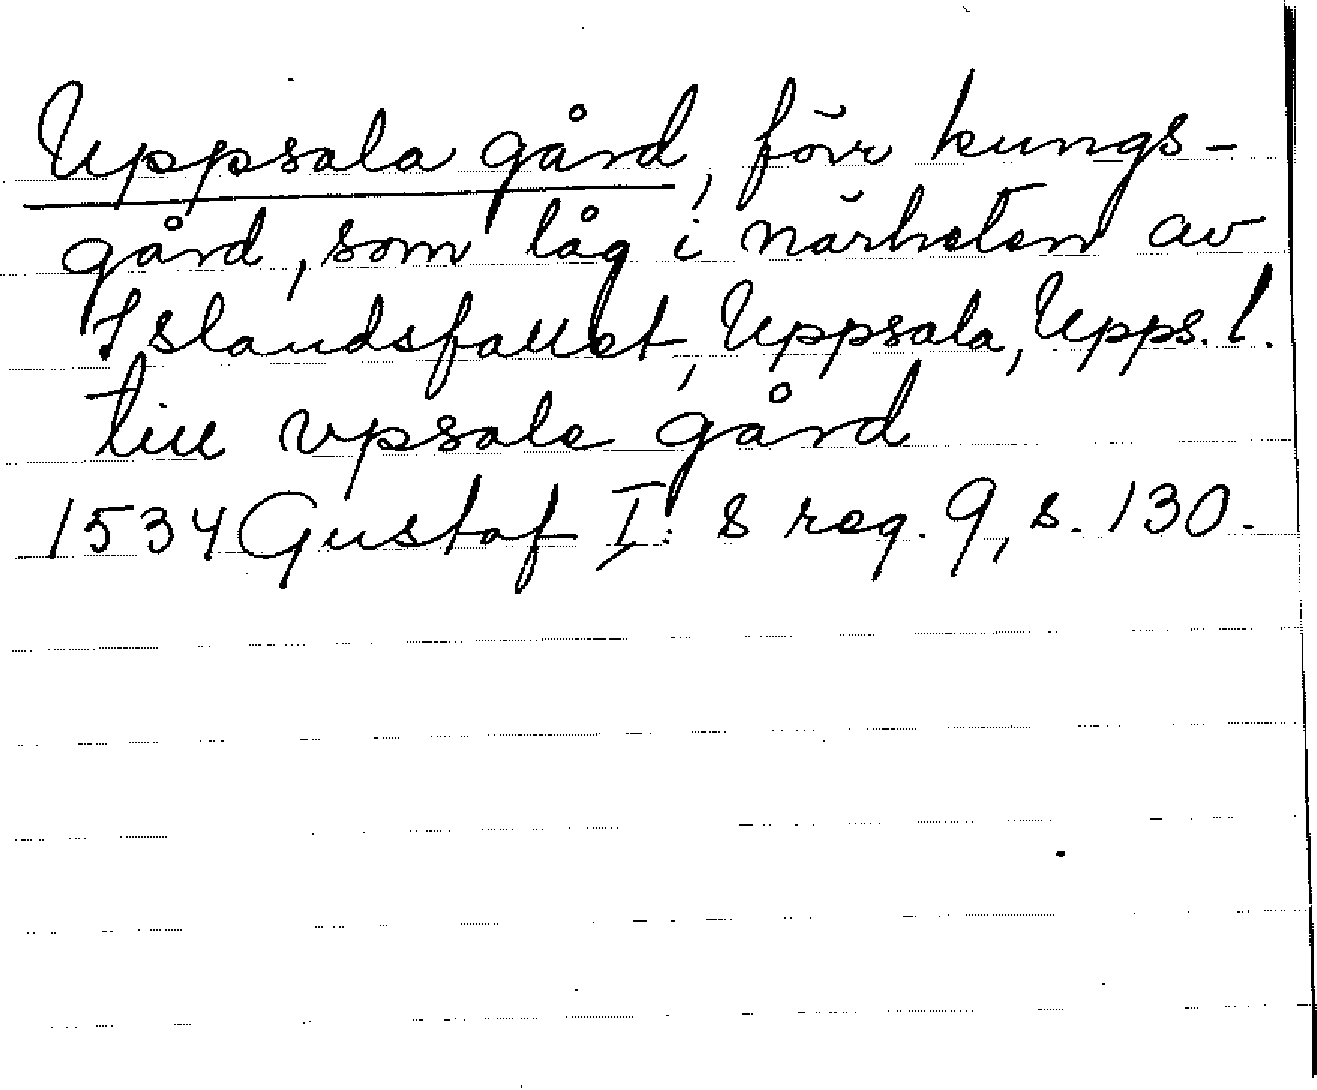 Uppsala gård, förr kungs-
gård, som låg i närheten av
Islandsfallet, Uppsala, Upps. l.
till vpsala gård
1534 Gustaf I:s reg. 9, s. 130.